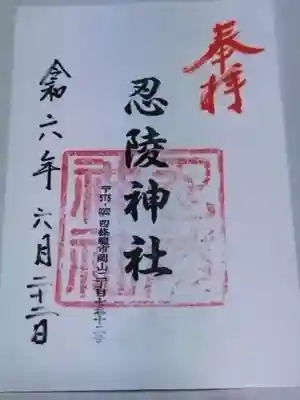 奉拝
忍陵神社
四條畷市岡山二丁目
令和六年六月二十二日